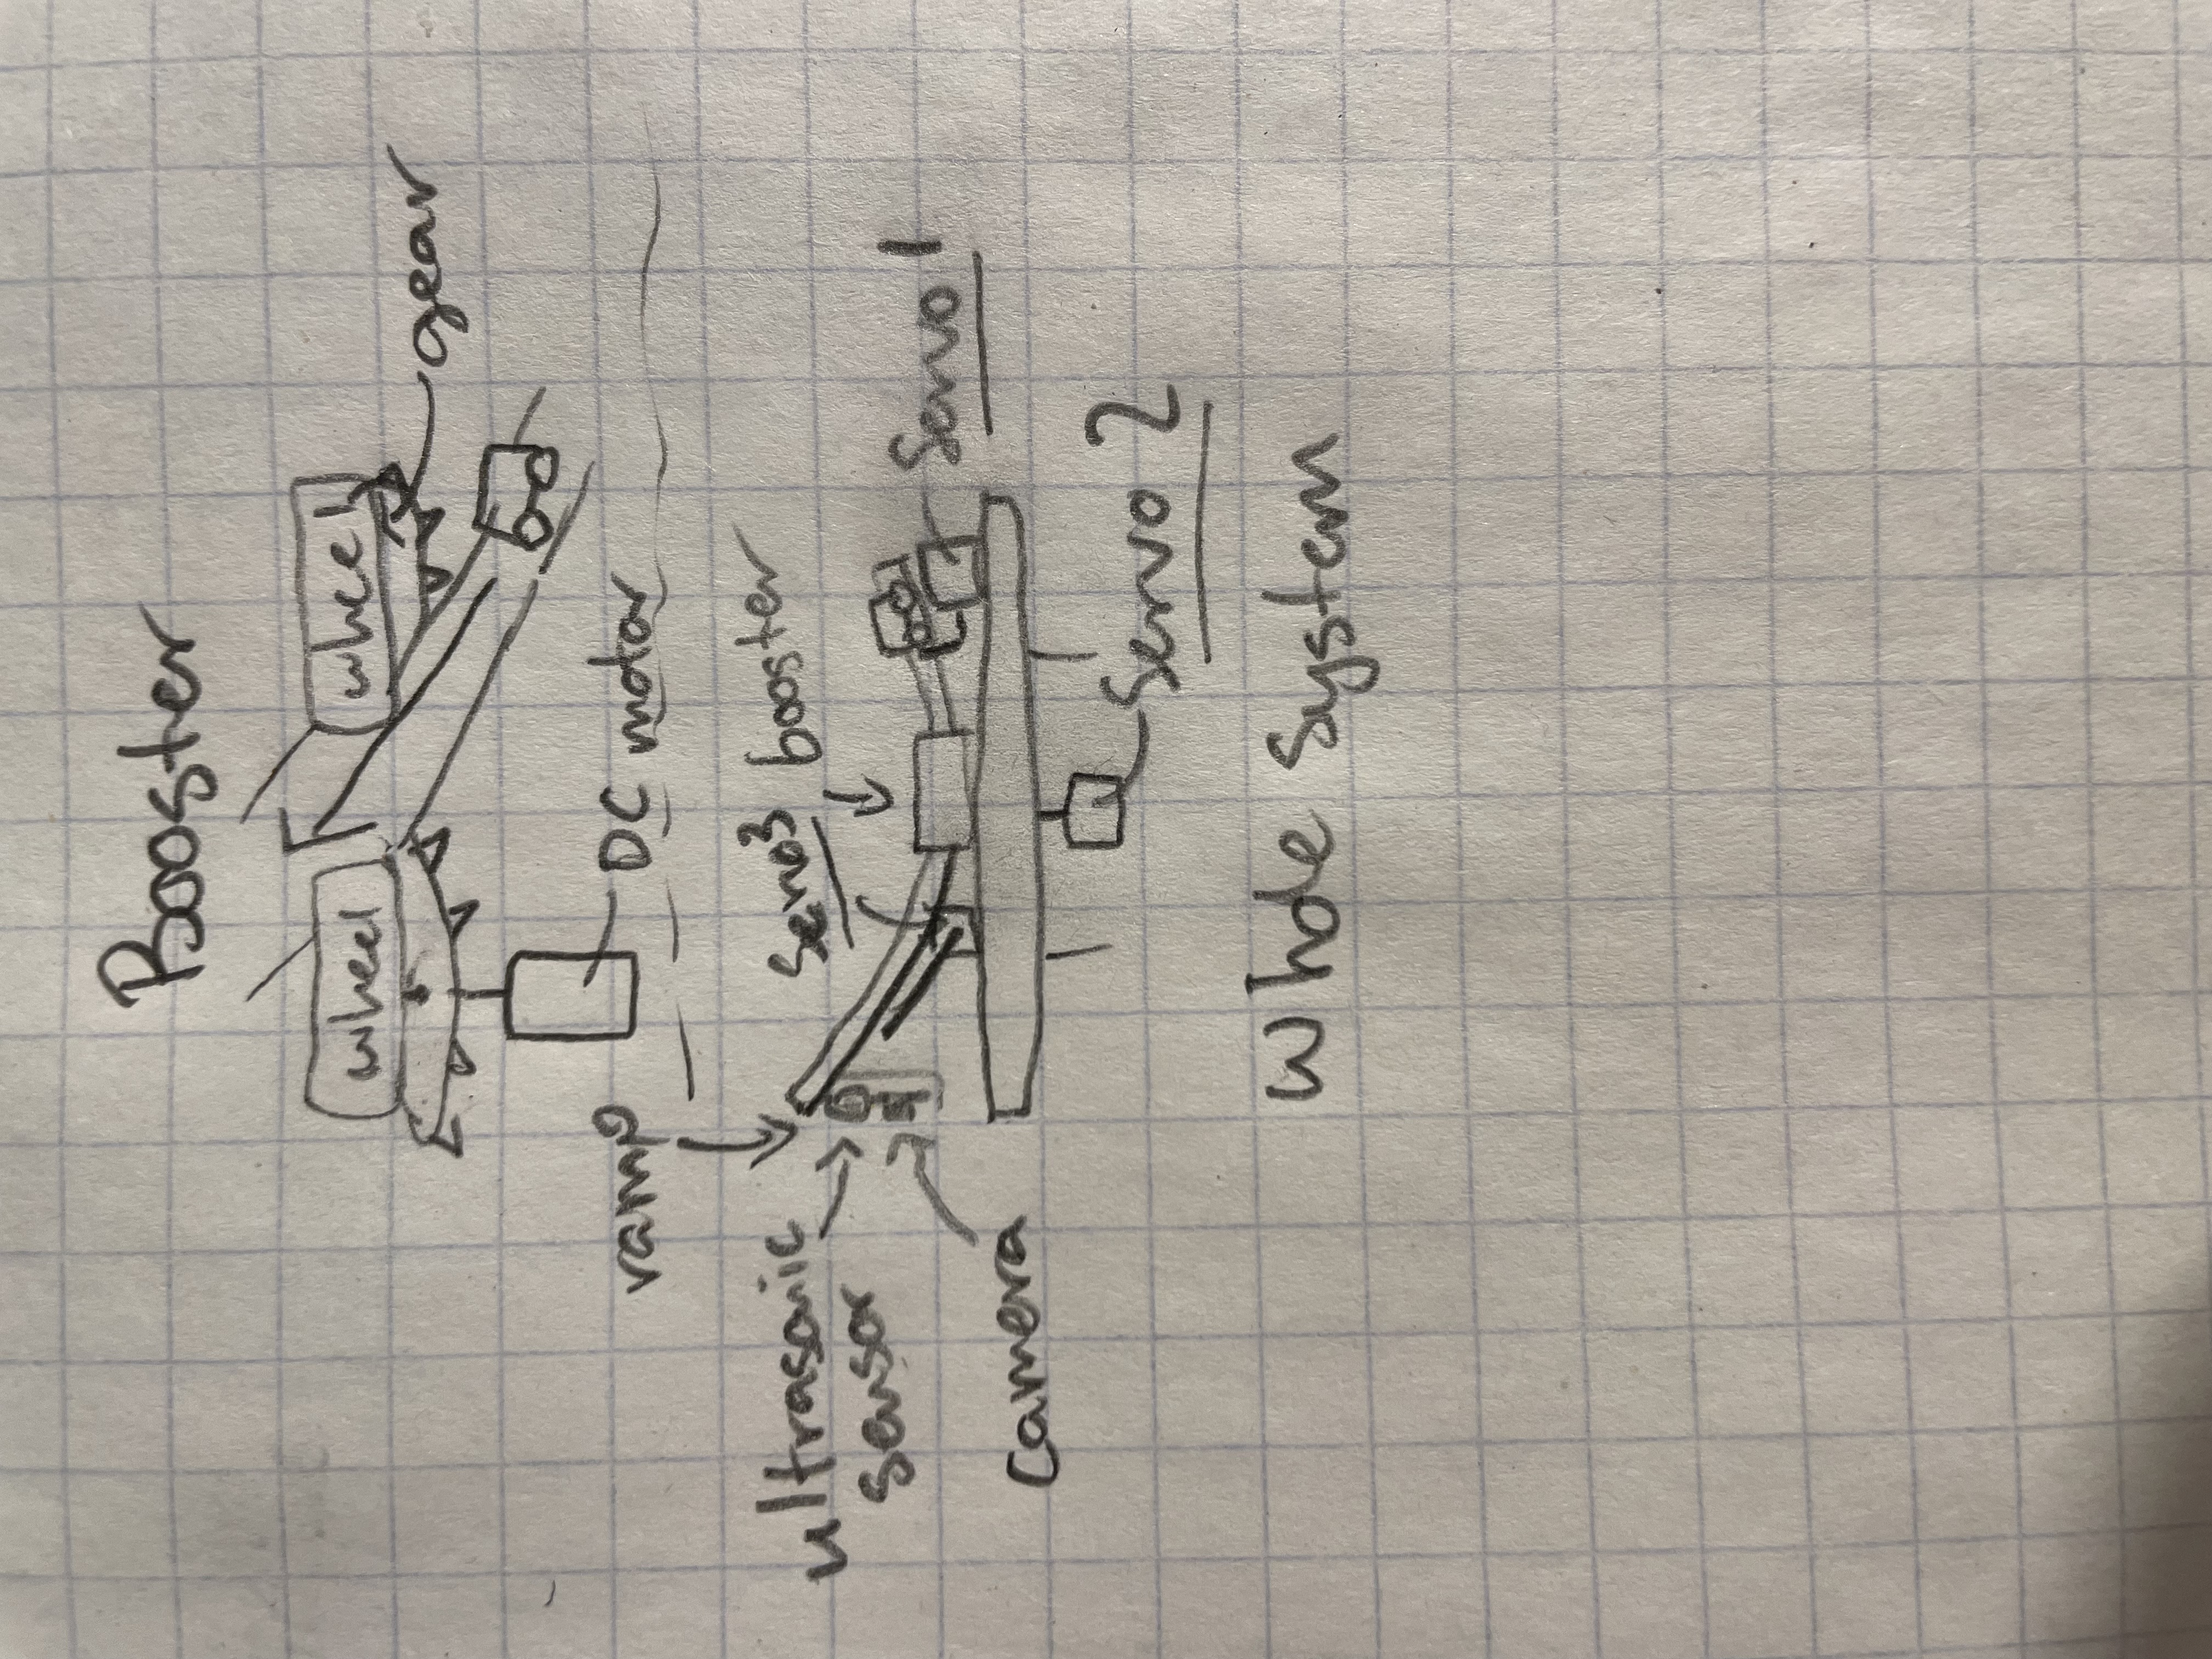 Booster
wheel
wheel
gear
DC motor
ramp
ultrasonic
sensor
Servo3
booster
camera
Servo 1
Servo 2
Whole System